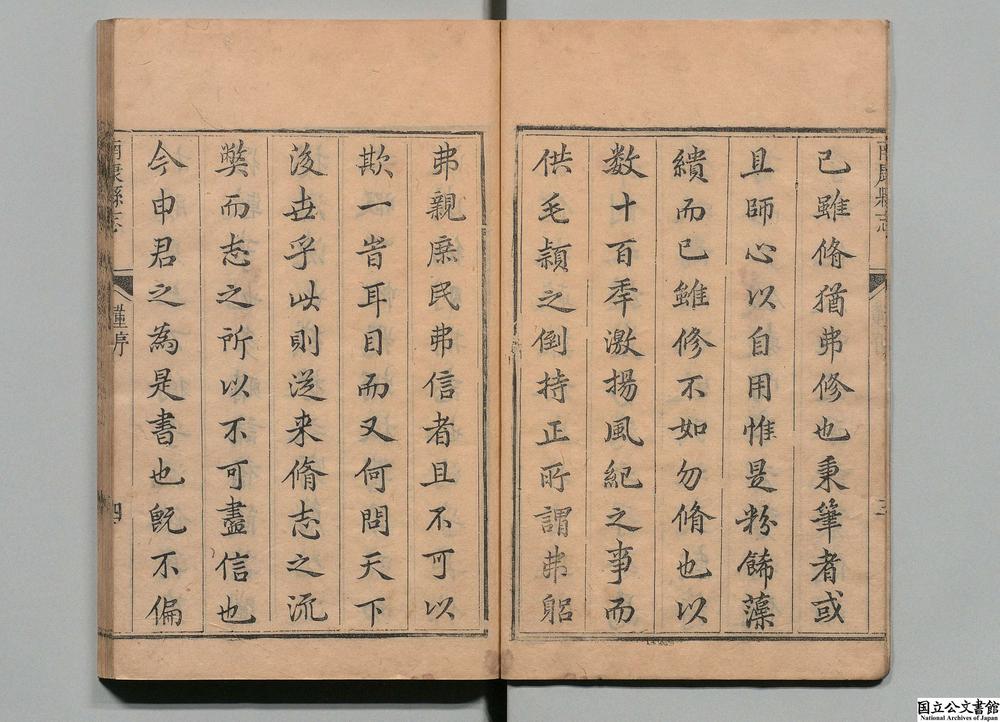 南康縣志
三
已雖脩猶弗修也秉筆者或
且師心以自用惟是粉餙藻
繢而已雖修不如勿脩也以
数十百秊激揚風紀之事而
供毛穎之倒持正所謂弗躬
弗親庶民弗信者且不可以
欺一峕耳目而又何問天下
後世乎此則從来脩志之流
獘而志之所以不可盡信也
今申君之為是書也旣不偏
南康縣志
序
四
国立公文書館
National Archives of Japan